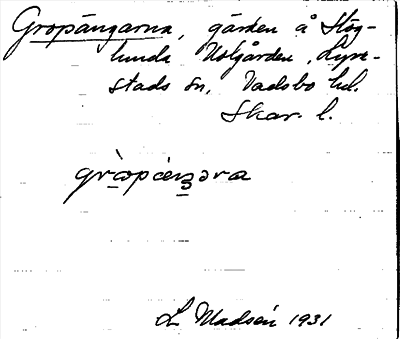 Gropängarna, gärden å Hög-
lunda Utgården, Lyre-
stads sn, Vadsbo hd.
Skar. l.
L Madsén 1931